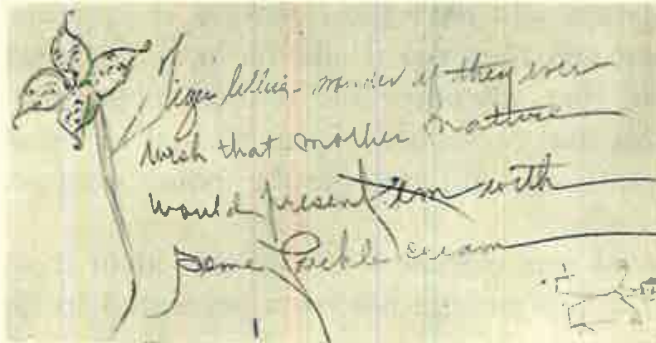 Tiger lillies - wonder if they ever
wish that mother nature
would present em with
some freckle cream